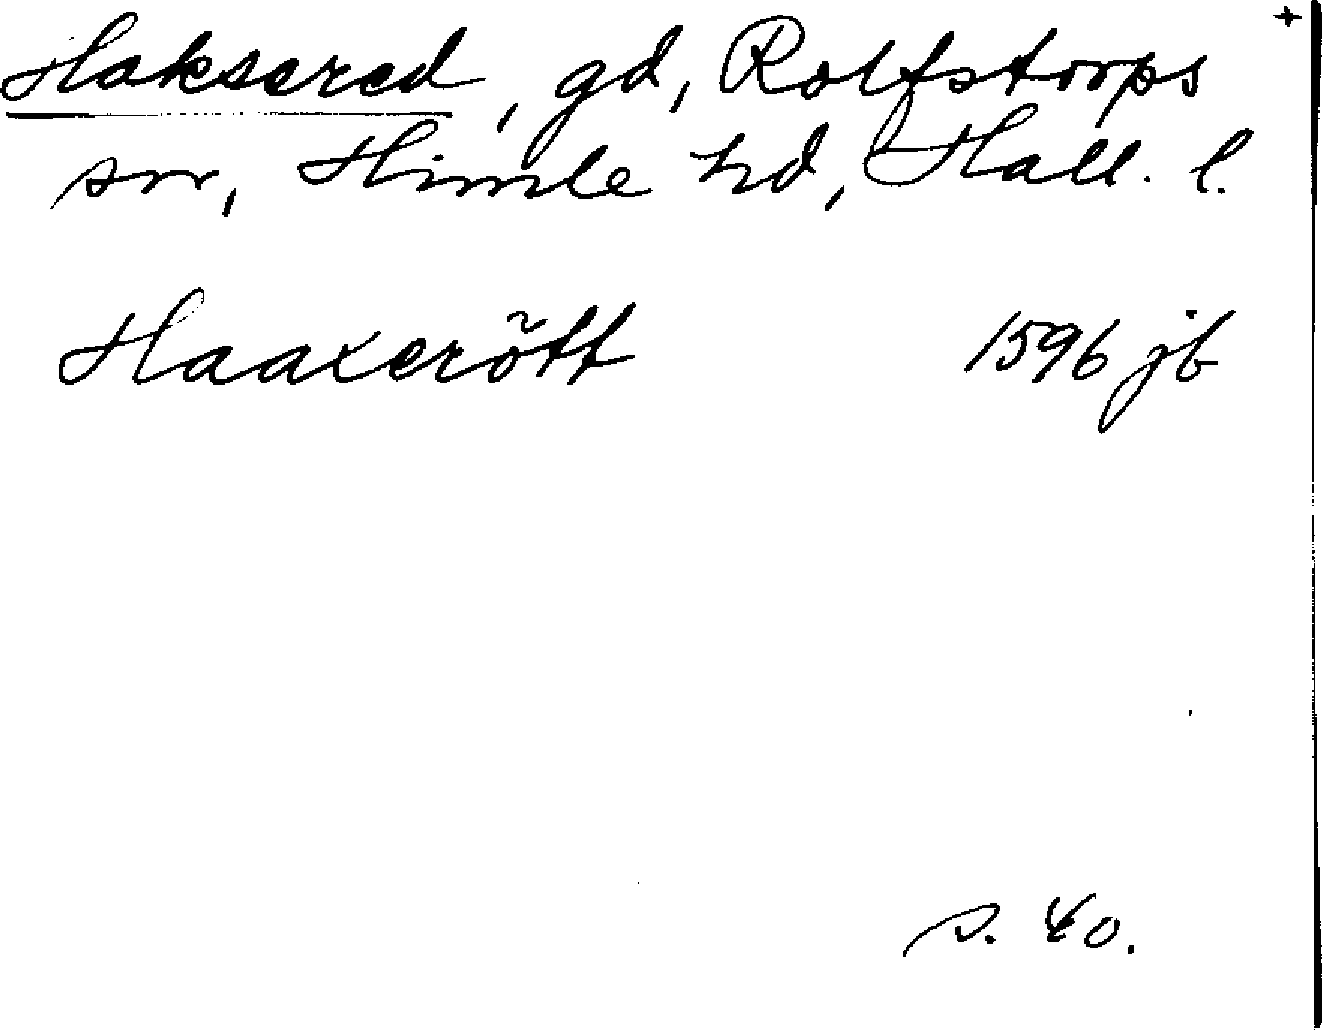 Haksered, gd, Rolfstorps +
sn, Himle hd, Hall. l.
Haaxerõtt 1596 jb
s. 40.